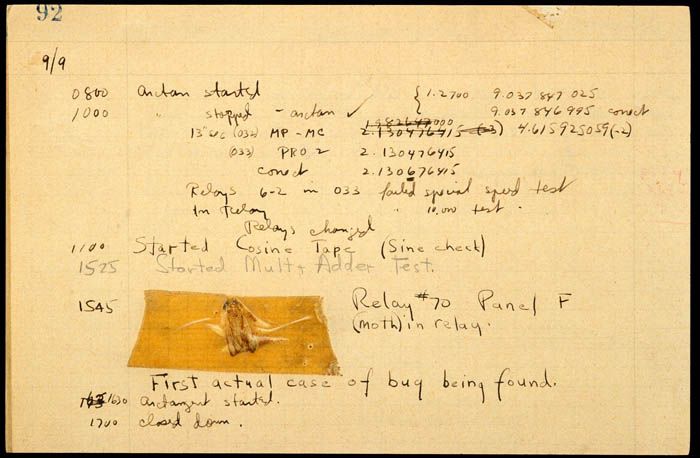 92
9/9
0800 arctan started { 1.2700 9.037 847 025
1000 " stopped - arctan ✓ 9.037 846 995 correct
13"uc (032) MP - MC 2.130476415 (-3) 4.615925059(-2)
(033) PRO 2 2.130476415
correct 2.130676415
Relays 6-2 in 033 failed special speed test
In Relay " 10,000 test .
Relays changed
1100 Started Cosine Tape (Sine check)
1525 Started Mult + Adder Test.
1545 Relay #70 Panel F
(moth) in relay.
First actual case of bug being found.
1630 arctangent started.
1700 closed down.